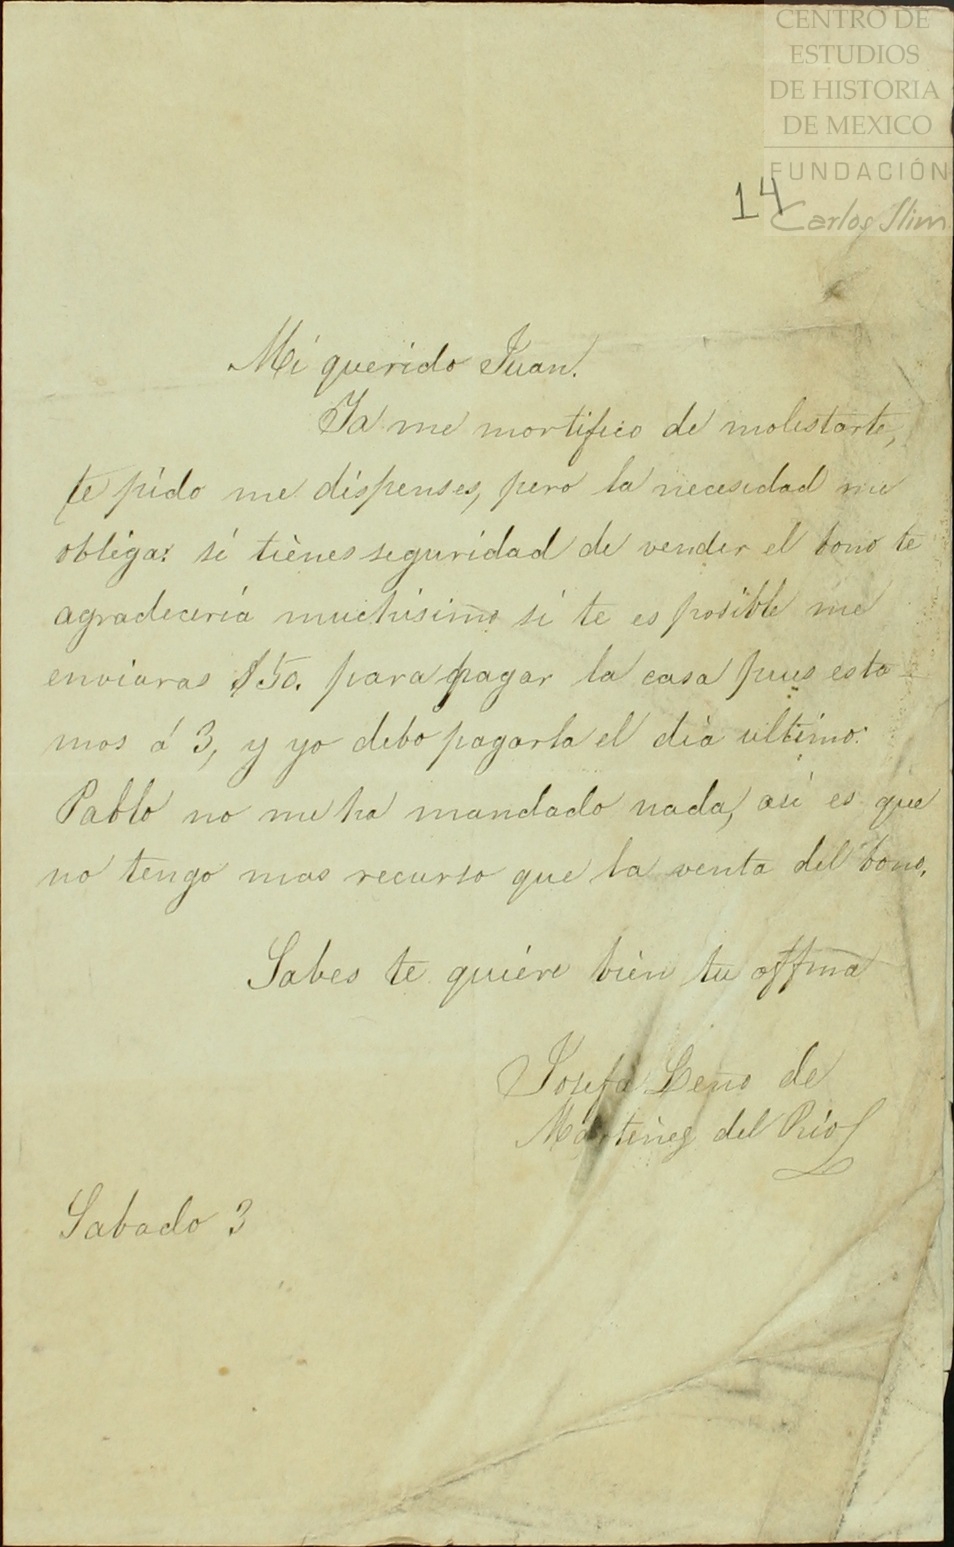 CENTRO DE
ESTUDIOS
DE HISTORIA
DE MEXICO
FUNDACIÓN
Carlos Slim
14
Mi querido Juan.
Ya me mortifico de molestarte,
te pido me dispenses, pero la necesidad me
obliga: si tienes seguridad de vender el bono te
agradeceria muchisimo si te es posible me
enviaras $50. para pagar la casa pues esta
mos á 3, y yo debo pagarla el dia ultimo.
Pablo no me ha mandado nada, asi es que
no tengo mas recurso que la venta del bono.
Sabes te quiere bien tu affma
Josefa Leño de
Martinez del Rio
Sabado 3